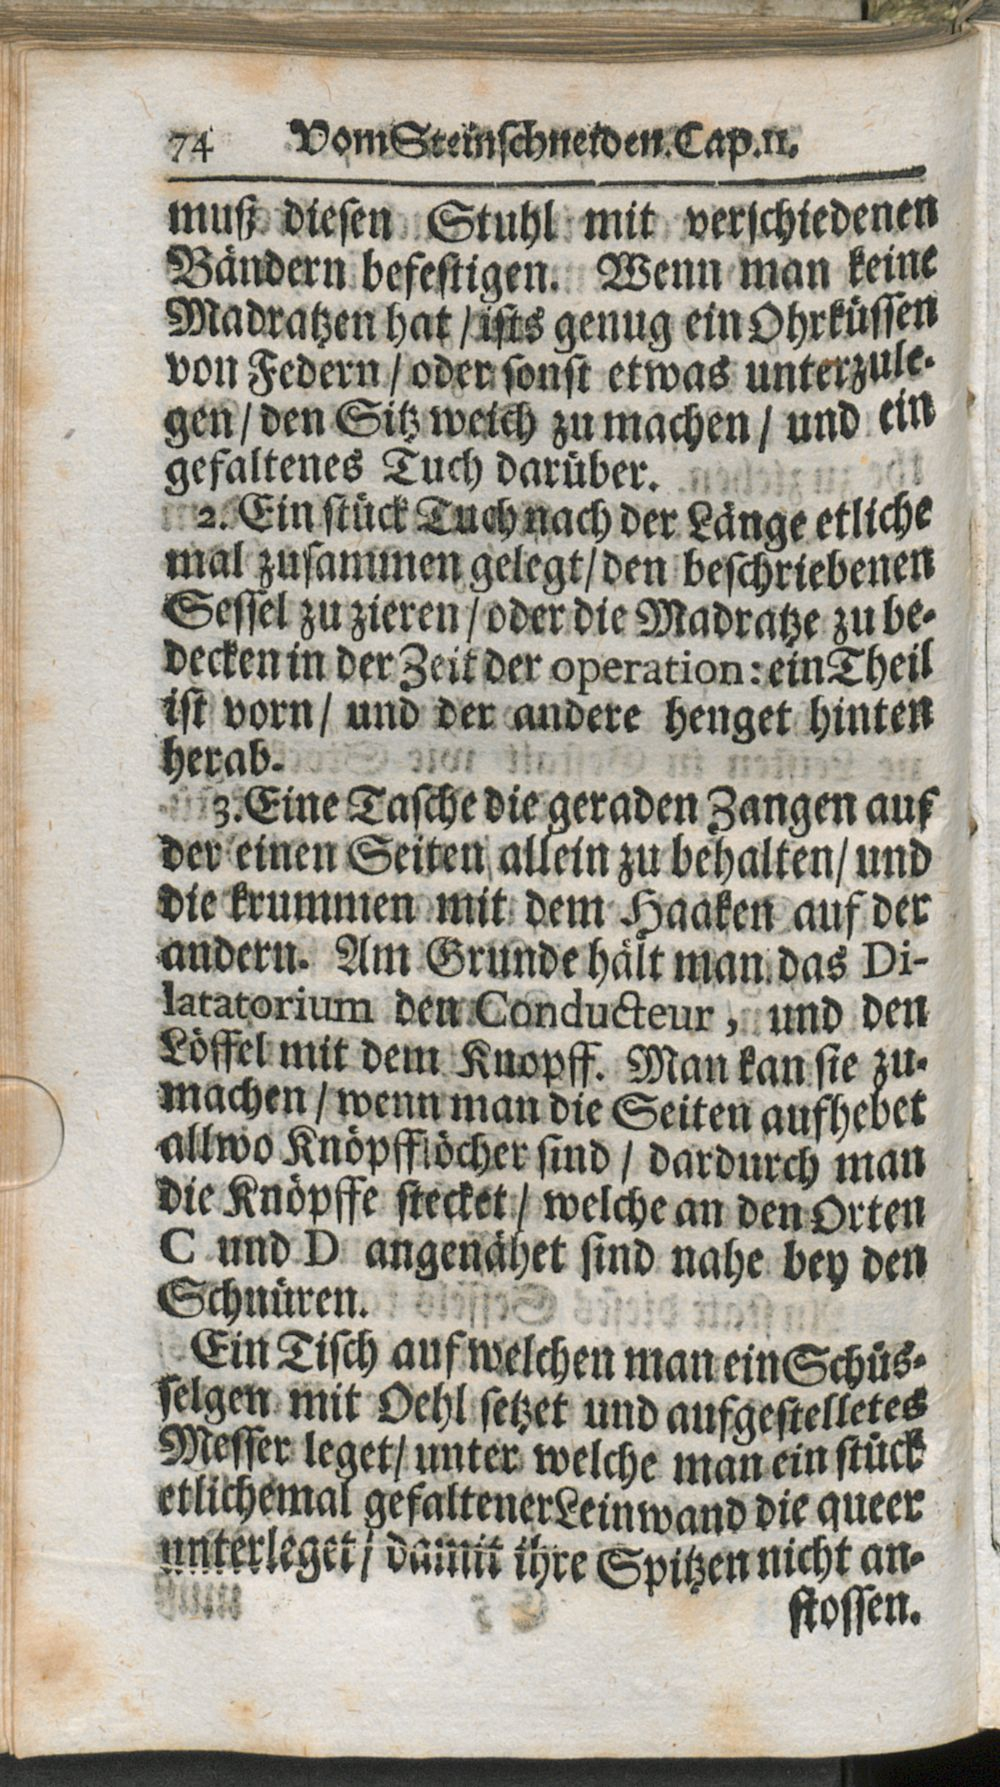 74 Vom Steinschneiden. Cap. 11.
muß diesen Stuhl mit verschiedenen
Bändern befestigen. Wenn man keine
Madratzen hat / ists genug ein Ohrküssen
von Federn / oder sonst etwas unterzule-
gen / den Sitz weich zu machen / und ein
gefaltenes Tuch darüber.
2. Ein stück Tuch nach der Länge etliche
mal zusammen gelegt / den beschriebenen
Sessel zu zieren / oder die Madratze zu be-
decken in der Zeit der operation: ein Theil
ist vorn / und der andere henget hinten
herab.
3. Eine Tasche die geraden Zangen auf
der einen Seiten allein zu behalten / und
die krummen mit dem Haaken auf der
andern. Am Grunde hält man das Di-
latatorium den Conducteur, und den
Löffel mit dem Knopff. Man kan sie zu-
machen / wenn man die Seiten aufhebet
allwo Knöpfflöcher sind / dardurch man
die Knöpffe stecket / welche an den Orten
C und D angenähet sind nahe bey den
Schnüren.
Ein Tisch auf welchen man ein Schüs-
selgen mit Oehl setzet und aufgestelletes
Messer leget / unter welche man ein stück
etlichemal gefaltener Leinwand die queer
unterleget / damit ihre Spitzen nicht an-
stossen.